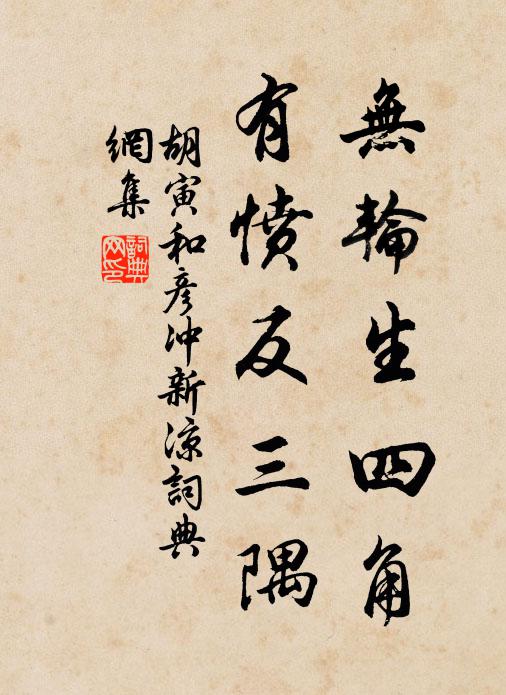 無輪生四角
有憤反三隅
胡寅和彥沖新涼詞典
網集
詞典
网印